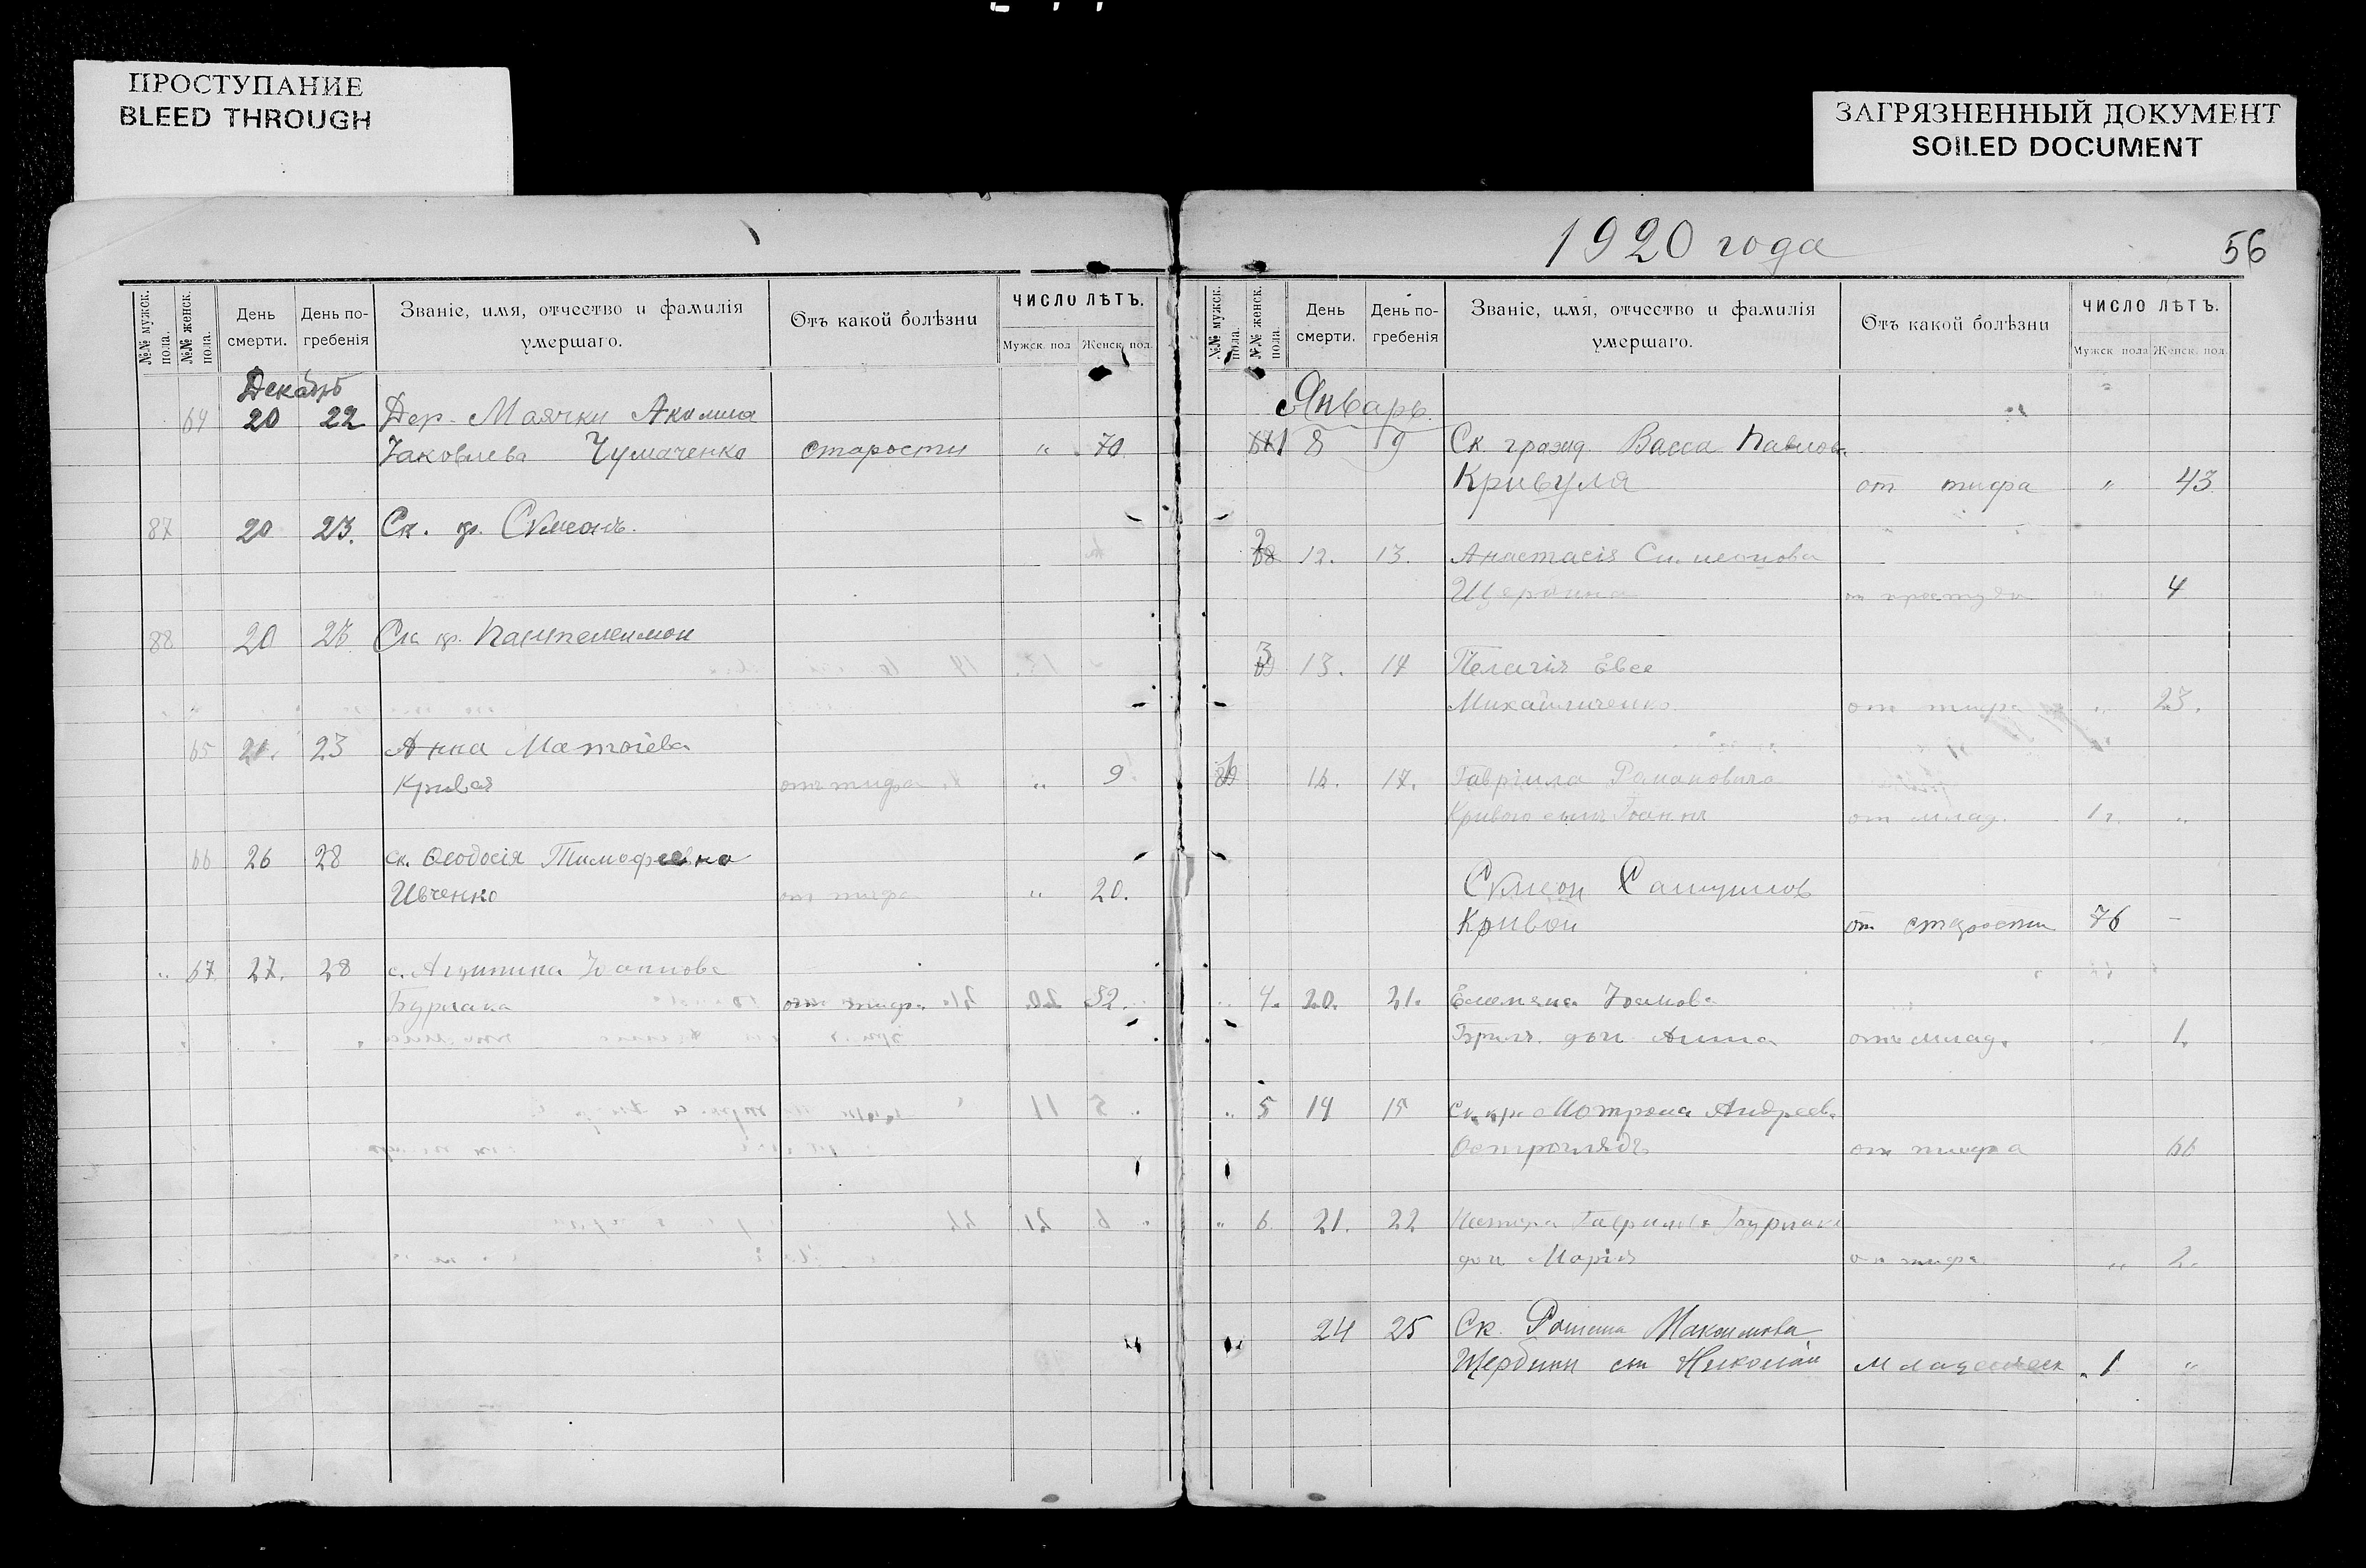 ПРОСТУПАНИЕ
BLEED THROUGH
ЗАГРЯЗНЕННЫЙ ДОКУМЕНТ
SOILED DOCUMENT
№№ мужск. пола.
№№ женск. пола.
День смерти.
День погребенія
Званіе, имя, отчество и фамилія умершаго.
Отъ какой болѣзни
ЧИСЛО ЛѢТЪ.
Мужск. пол. Женск. пол.
Декабрь
64 20 22 Дер. Маячки Акилина
Іаковлева Чумаченко старости " 70.
87 20 23. Ск. гр. Сѵмеонъ.
88 20 23. Ск гр. Пантелеимон
65 21. 23 Анна Матѳіева
Кривая отъ тифа " 9.
66 26 28 ск. Ѳеодосія Тимофеевна
Ивченко от тифа " 20.
" 67. 27. 28 с. Іоаннова
Бурлака от тифа 52.
1920 года
56
№№ мужск. пола.
№№ женск. пола.
День смерти.
День погребенія
Званіе, имя, отчество и фамилія умершаго.
Отъ какой болѣзни
ЧИСЛО ЛѢТЪ.
Мужск. пола Женск. пол.
Январь.
1 8 9 Ск. гражд. Васса Павлов.
Кривуля от тифа " 43.
2 12. 13. Анастасія Симеонова
Щербина от простуды " 4
3 13. 14 Пелагія Евсе
Михайличенко. от тифа " 23.
1 16. 17. Гавріила Романовича
Кривого сынъ Іоаннъ от млад. 1 г. "
Сѵмеон Самуилов
Кривой от старости 76 -
" 4. 20. 21. Іоаннова
Бриль дочь Анна отъ млад. " 1.
" 5 14 15 Ск. кр. Мотрона Андреев.
Остроглядъ от тифа 66
" 6. 21. 22 Бурлака
дочь Марія от тифа " 2.
24 25 Ск. Романа Максимова
Щербины сын Николай младенческ. 1 "